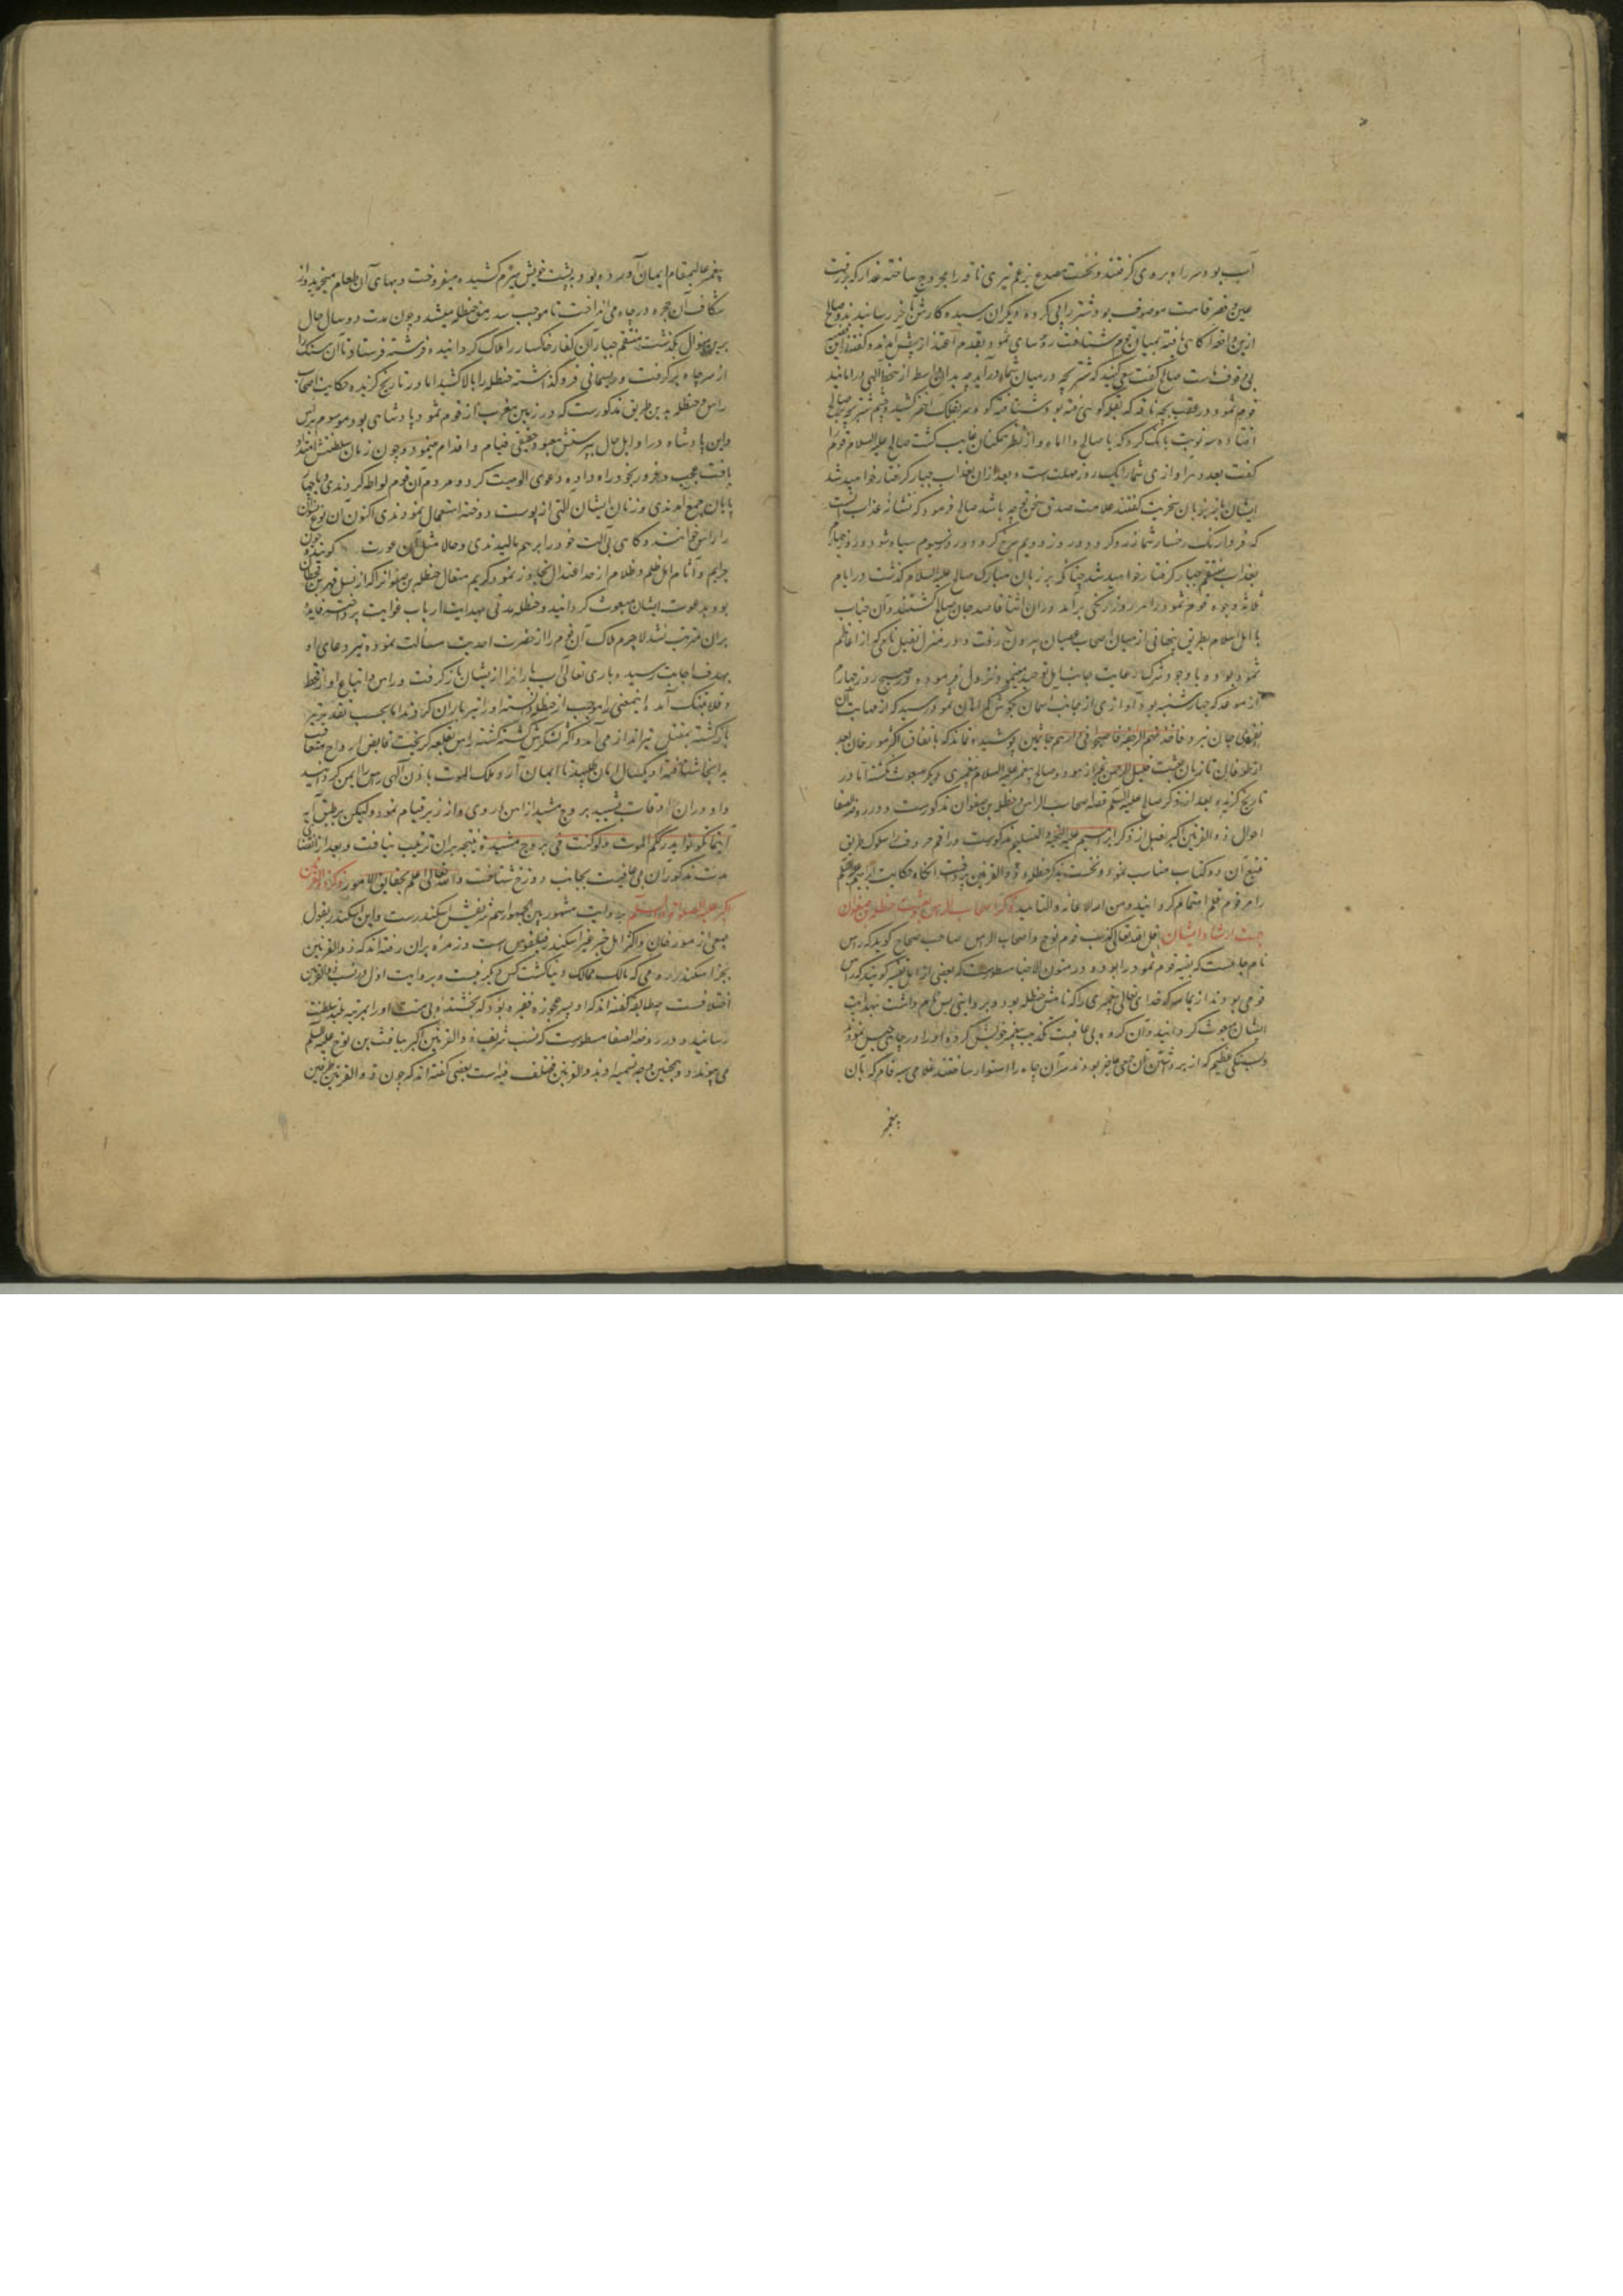 آب بود سر راه بروی گرفتند و نخست مصدع بزخم تیری ناقه را مجروح ساخته غدار که بزرقت
عین و قصر قامت موصوف بود شتر را پی کرده و دیگران رسیده کارش بآخر رسانیدند و صالح
ازین واقعه آگاهی یافته بمیان قوم شتافت رؤسای ثمود بقدم اعتذار پیش آمدند و گفتند این
بی وقوف ماست صالح گفت سعی کنید که شتر بچه در میان شما درآید چه بدان واسطه از سخط الهی در امانید
قوم ثمود در عقب بچه ناقه که بقله کوهی رفته بود شتافته کوه سر بفلک اخضر کشید و چشم شتر بچه بر صالح
افتاده سه نوبت بانگ کرد که یا صالح وا اماه و از نظر همکنان غایب گشت صالح علیه السلام قوم را
گفت بعدد هر آوازی شما را یک روز مهلت است و بعد از آن بعذاب جبار گرفتار خواهید شد
ایشان باز بزبان سخریت گفتند علامت صدق سخن تو چه باشد صالح فرمود که نشانه عذاب آنست
که فردا رنگ رخسار شما زرد گردد و روز دویم سرخ گردد و روز سیوم سیاه شود و روز چهارم
بعذاب منتقم جبار گرفتار خواهید شد چنانکه بر زبان مبارک صالح علیه السلام گذشت در ایام
ثلاثه وجوه قوم ثمود در هر روز برنگی برآمد در آن اثنا قاصد جان صالح گشتند و آن جناب
با اهل اسلام بطریق پنهانی از میان اصحاب عصیان بیرون رفت و در منزل نفیل نامی که از اعاظم
ثمود بود و با وجود شرک رعایت جانب اهل توحید مینمود نزول فرمود و صبح روز چهارم
از موعد که چهارشنبه بود آوازی از جانب آسمان بگوش گمراهان ثمود رسید که از صابت آن
نفوی جان نبرد فاخذتهم الرجفة فاصبحوا فی دارهم جاثمین پوشیده نماند که باتفاق اکثر مورخان بعد
از طوفان تا زمان بعثت خلیل الرحمن بجز از هود و صالح پیغمبر علیه السلام پیغمبری دیگر مبعوث نگشته اما در
تاریخ گزیده بعد از ذکر صالح علیه السلام قصه اصحاب الراس و حنظلة بن صفوان مذکورست و در روضة الصفا
احوال ذو القرنین اکبر قبل از ذکر ابراهیم علیه التحیة و التسلیم مذکورست و راقم حروف را سلوک طریق
تتبع آن دو کتاب مناسب نمود و نخست بذکر حنظله و ذو القرنین پرداخت آنگاه حکایت ابراهیم علیه السلم
را مرقوم قلم اهتمام گردانید و من الله الاعانه و التایید ذکر اصحاب الرس و بعثت حنظلة بن صفوان
جهت ارشاد ایشان قال الله تعالی کذبت قوم نوح و اصحاب الرس صاحب صحاح گوید که رس
نام چاهیست که بقیه قوم ثمود را بود و در متون الاخبار مسطورست که بعضی از اهل تفسیر گویند که رس
قومی بودند از یمامه که خدای تعالی پیغمبری را که نامش حنظله بود و بروایتی رس نام داشت بهدایت
ایشان مبعوث گردانید و آن گروه بی عاقبت تکذیب پیغمبر خویش کرده او را در چاهی حبس نمودند
و بسنگی عظیم که از برداشتن آن جمعی عاجز بودند سر آن چاه را استوار ساختند غلامی سیه فام که بآن
پیغمبر
پیغمبر عالیمقام ایمان آورده بود بر پشت خویش هیزم کشیده میفروخت و ببهای آن طعام میخرید و از
شکاف آن حجره در چاه می انداخت تا موجب سد رمق حنظله میشد و چون مدت دو سال حال
برین منوال بگذشت منتقم جبار آن کفار خاکسار را هلاک گردانیده فرشته فرستاد تا آن سنگ را
از سر چاه برگرفت و ریسمانی فرو گذاشته حنظله را بالا کشید اما در تاریخ گزیده حکایت اصحاب
راس و حنظله بدین طریق مذکورست که در زمین مغرب از قوم ثمود پادشاهی بود موسوم برس
و این پادشاه در اوایل حال بپرستش معبود حقیقی قیام و اقدام مینمود و چون زمان سلطنتش امتداد
یافت عجب و غرور بخود راه داده دعوی الوهیت کرد و مردم آن قوم لواطه کردندی و با چهار
پایان جمع آمدندی و زنان ایشان آلتی از پوست دوخته استعمال نمودندی اکنون آن نوع زنان
را راسی خوانند و گاهی بی آلت خود را بر هم مالیدندی و حالا مثل آن عورت گویند چون
جرایم و آثام اهل ظلم و ظلام از حد اعتدال تجاوز نمود کریم متعال حنظلة بن صفوانرا که از نسل فهر بن قحطان
بود بدعوت ایشان مبعوث گردانید و حنظله مدتی بهدایت ارباب غوایت پرداخته فایده
بران مترتب نشد لاجرم هلاک آن قوم را از حضرت احدیت مسألت نموده تیر دعای او
بهدف اجابت رسیده باری تعالی آب باران را از ایشان باز گرفت و راس و اتباع او از قحط
و غلا بتنگ آمده اینمعنی را موجب از حنظله دانسته او را تیر باران کردند اما بحسب تقدیر تیر
بازگشته بمقتل تیرانداز می آمد و اکثر لشکرش کشته گشته راس بقلعه گریخت قابض ارواح متعاقب
بدانجا شتافته او یکسال امان طلبید تا ایمان آرد و ملک الموت باذن الهی رس را ایمن گردانید
و او در آن اوقات بتشیید بروج مشید از آهن و روی و ارزیز قیام نمود و لیکن بر طبق آیه
اینما تکونوا یدرککم الموت و لو کنتم فی بروج مشیدة نتیجه بران ترتیب نیافت و بعد از انقضای
مدت مذکور آن بی عاقبت بجانب دوزخ شتافت و الله تعالی اعلم بحقایق الامور ذکر ذو القرنین
اکبر علیه الصلوة و السلام بروایت مشهور بین الجمهور اسم شریفش اسکندرست و این اسکندر بقول
جمعی از مورخان و اکثر اهل خبر غیر اسکندر فیلقوس است و زمره بران رفته اند که ذو القرنین
بجز اسکندر رومی که مالک ممالک دنیا گشت کس دیگر نیست و بر روایت اول در نسب ذو القرنین
اختلافست چه طایفه گفته اند که او پسر عجوزه فقیره بود که بخشنده بی منت او را بمرتبه بلند سلطنت
رسانید و در روضة الصفا مسطورست که نسب شریف ذو القرنین اکبر بیافث بن نوح علیه السلم
می پیوندد و همچنین وجه تسمیه او بذو القرنین مختلف فیه است بعضی گفته اند که چون ذو القرنین طرفین